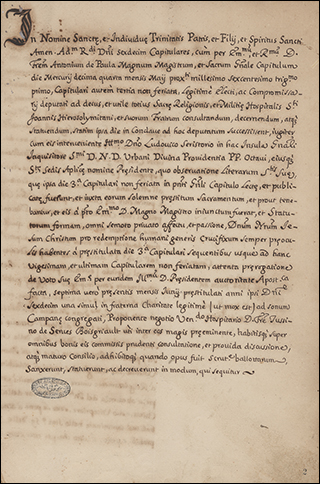 In Nomine Sanctæ, et Individuæ Trinitatis Patris, et Filij, et Spiritus Sancti
Amen. Adm. Rdi Dni Sexdecim Capitulares, cum per Emum, et Rmum D.
Frem Antonium de Paula Magnum Magistrum, et Sacrum Gñale Capitulum
die Mercurij decima quarta mensis Maij proxi millesimo sexcentesimo trigmo
primo, Capitulari autem tertia non feriata, legitime Electi, ac Compromissarij
deputati ad decus, et utile totius Sacræ Religionis, et Militiæ Hospitalis Sti
Joannis Hierosolymitani, et suorum Fratrum consultandum, decernendum, atque
statuendum, statim ipsa die in Conclave ad hoc deputatum successissent, iugiter
cum eis interveniente Illmo Dno Ludovico Serristorio in hac Insula Gñali
Inquisitore Smi D. N. D. Urbani Divina Providentia PP. Octavi, eiusq
Stæ Sedis Aplicæ nomine Presidente, quo observatione literarum Stis Suæ,
quæ ipsa die 3a Capitulari non feriata in pñti Gñli Capitulo lectæ, et publi-
catæ fuerunt, et iuxta eorum solemne prestitum Sacramentum, et prout tene-
bantur, et eis a pto Emo D. Magno Magistro iniunctum fuerat, et Statu-
torum formam, omni semoto privato affectu, et passione, Dnum Nrum Je-
sum Christum pro redemptione humani generis Crucifixum semper præ ocu-
lis habentes a prestituta die 3a Capitulari sequentibus usque ad hanc
vigesimam, et ultimam Capitularem non feriatam, attenta prorogatione
de Voto Suæ Emæ per eundem Illmum D. Presidentem auctoritate Aposca
facta, septima vero presentis mensis Junij prestitulati anni ipsi Dni
Sexdecim una simul in fraterna Charitate legitime ut mox est ad sonum
Campanæ congregati, Proponente negotia Vendo Hospitalario D. Fre Justi-
no de Senes Boisgenault uti inter eos magis preeminente, habitisque super
omnibus bonis eis commissis prudenti consultatione, et provida discussione,
atque maturo Consilio, adhibitoque quando opus fuit Scrutio ballotarum
Sanxerunt, statuerunt, ac decreverunt in modum, qui sequitur
2